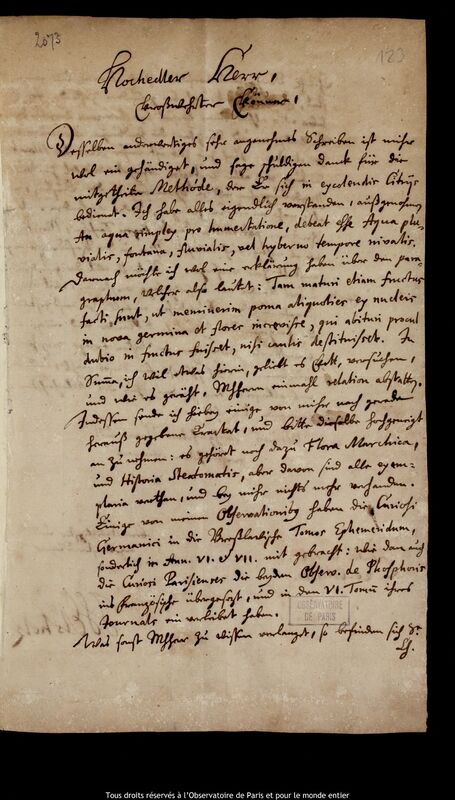 2073
123
Hochedler Herr,
Großwehrter Gönner,
Desselben anderwertiges sehr angenehmes Schreiben ist mihr
wol ein gehändiget, und sage schuldigen danck für die
mitgetheilte Methode, der Er sich in excolendis Citrijs
bedienet. Ich habe alles eigendlich verstanden, außgenohmen
An aqua simplex pro humectatione, debeat esse Aqua plu-
vialis, fontana, fluvialis, vel hyberno tempore nivalis.
Darnach möchte ich wol eine erklärung haben über den para-
graphum, welcher also lautet: Tam maturi etiam fructus
facti sunt, ut meminerim poma aliquoties ex nucleis
in nova germina et flores increvisse, qui abituri procul
dubio in fructus fuissent, nisi caulis destituisset. In
Summa, ich wil etwas hierin, geliebt es Gott, versuchen,
und wie es geräht, MhHerrn einmahl relation abstatten.
Indessen sende ich hiebey einige von mihr noch gerade
herauß gegebene Tractat, und bitte dieselbe hochgeneigt
an zu nehmen: es gehöret noch dazu Flora Marchica,
und Historia Steatomatis, aber davon sind alle exem-
plaria verthan, und bey mihr nichts mehr verhanden.
Einige von meinen Observationibus haben die Curiosi
Germanici in die Breßlawische Tomos Ephemeridum,
sonderlich in Ann. VI. & VII. mit gebracht: wie dan auch
die Curiosi Parisienses die beyden Observ. de Phosphoris
ins Französische übergesezt, und in dem VI. Tomo ihres
Journals ein verleibet haben.
Was sonst MhHerr zu wissen verlanget, so befinden sich Sr
Ch.
OBSERVATOIRE
DE PARIS
Tous droits réservés à l'Observatoire de Paris et pour le monde entier